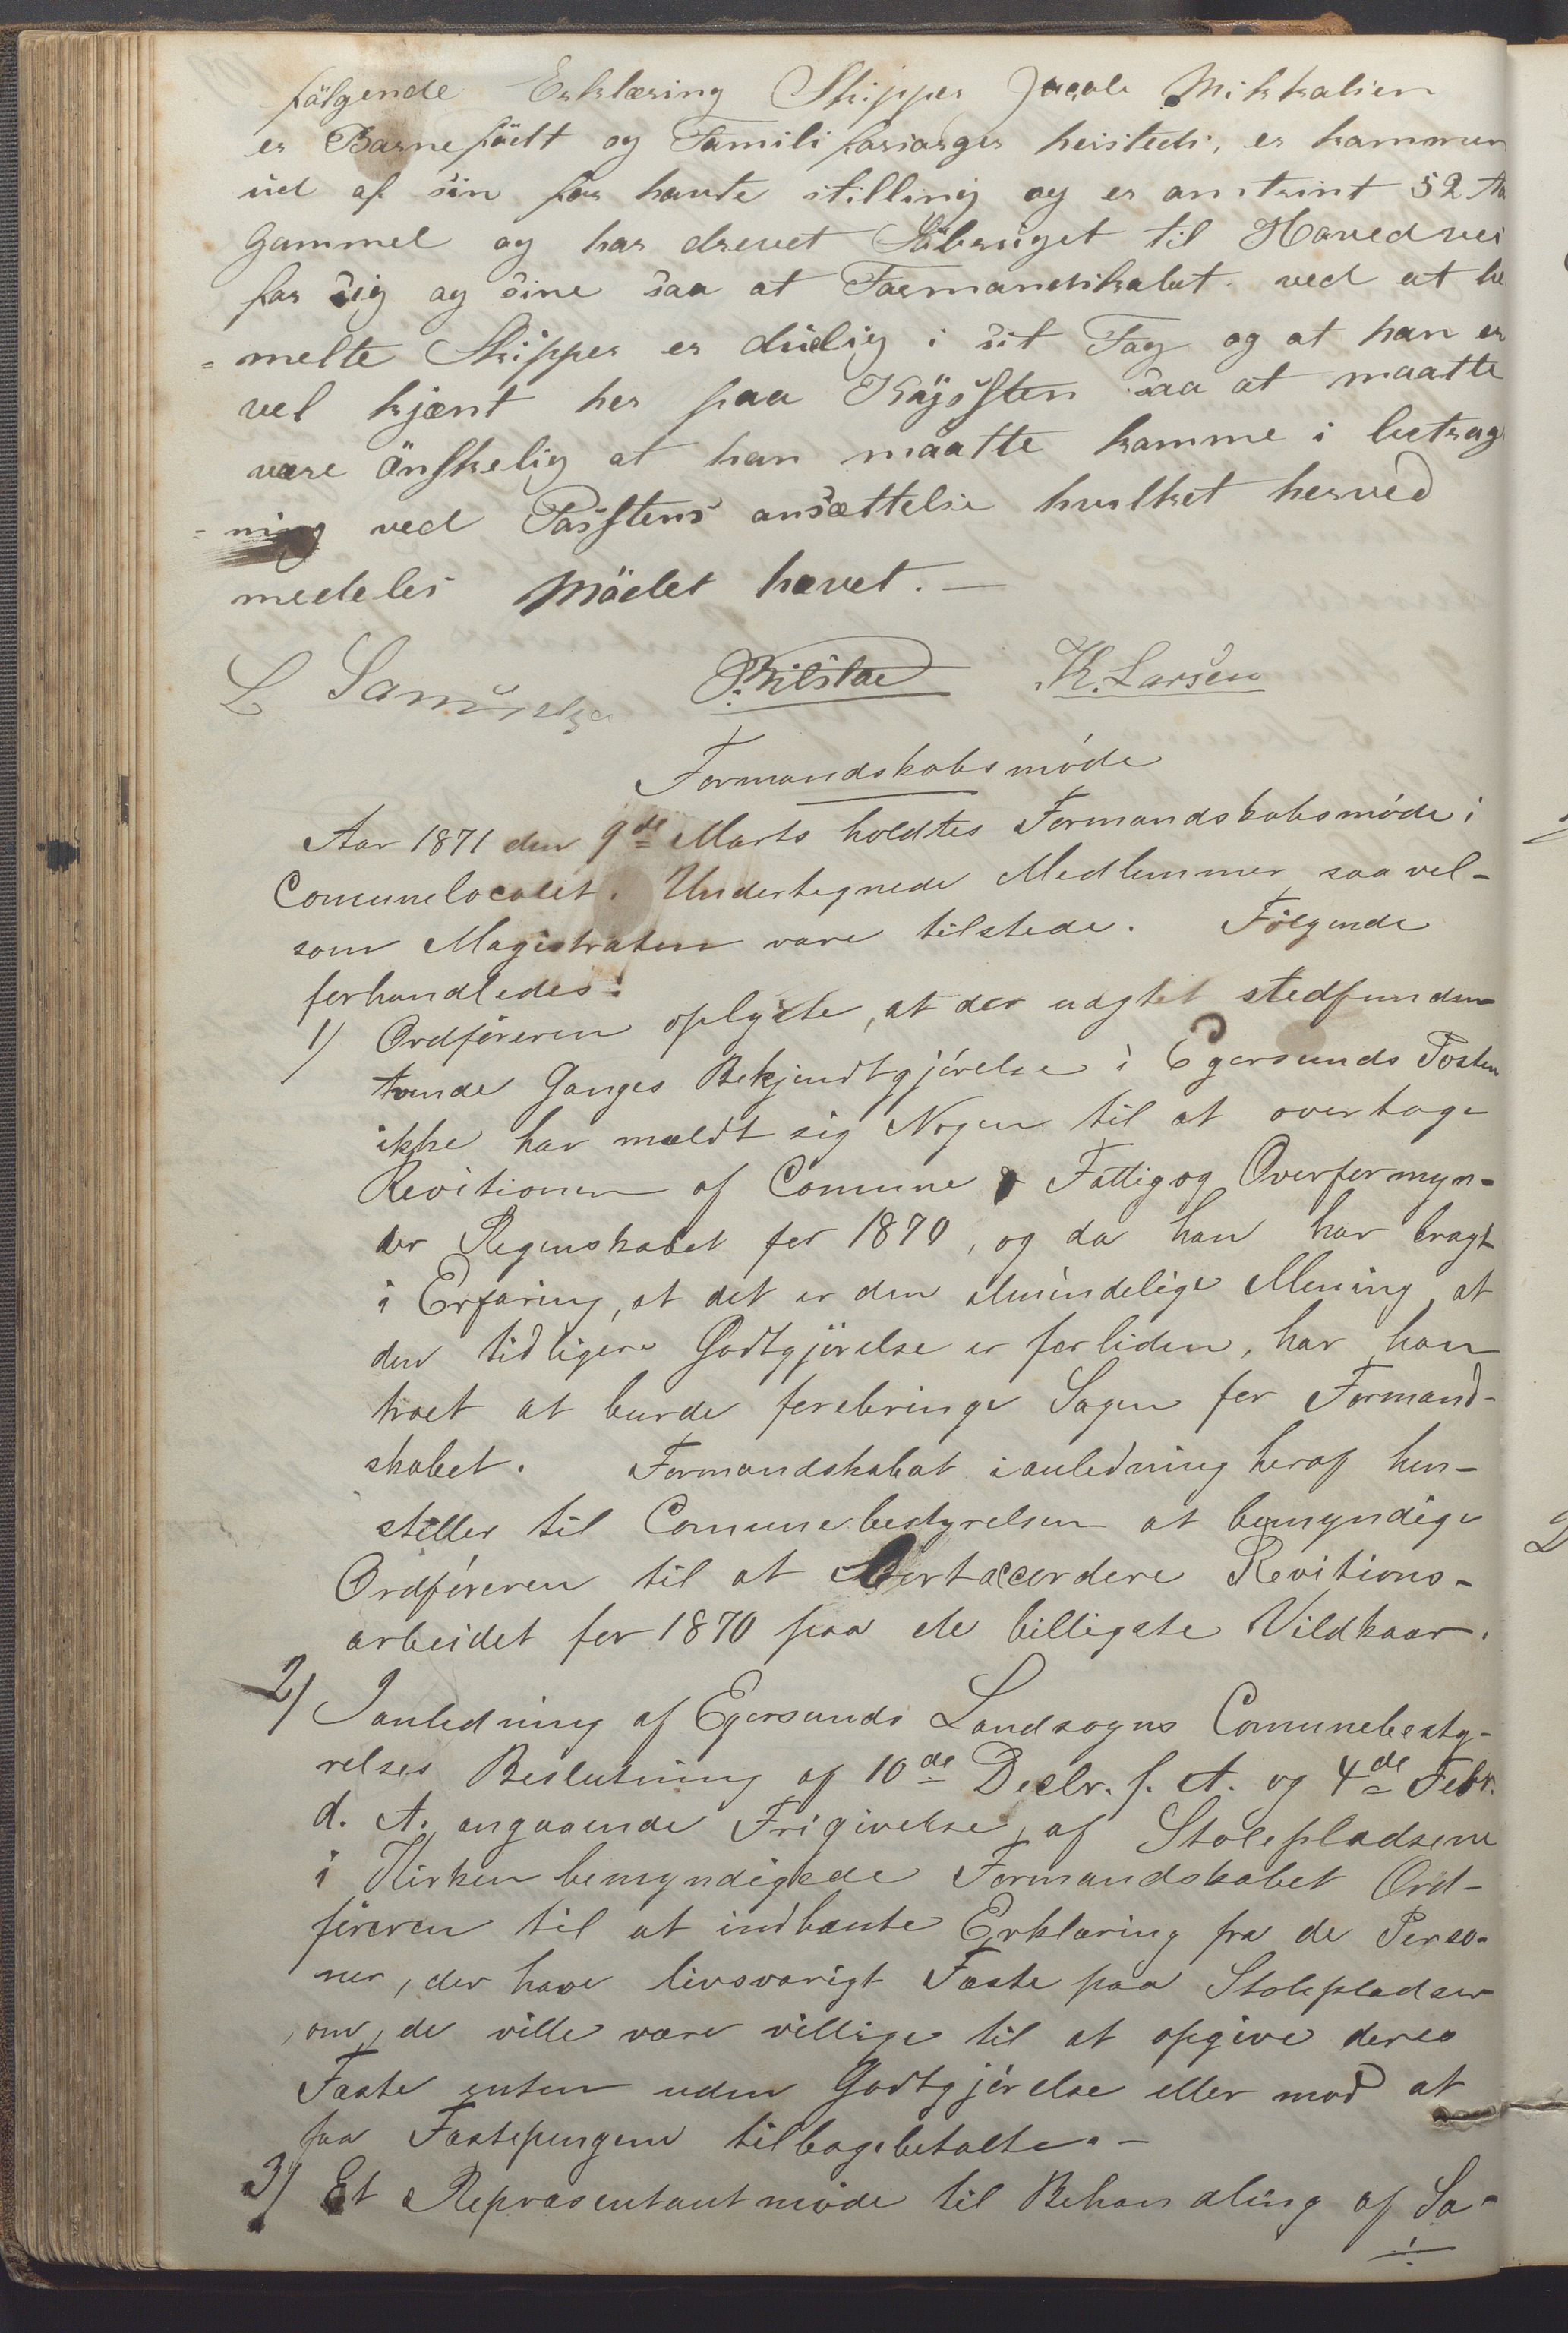 fölgende Erklæring Skipper Jacob Mikkalsen
er Barnefödt og Familiforsørger heisteds, er kommen
ud af sin for havte stilling og er omtrint 52 Aa
Gammel og har drevet Söbruget til Hovedvei
for sig og sine saa at Formandskabet ved at be
=melte Skipper er düelig i sit Fag og at han er
vel kjænt her paa Küjssten saa at maatte
være önskelig at han maatte komme i betrag
=ning ved Possstens ansættelse hvilket herved
medeles Mödet hævet. —
L Samuelsen K. Larsen
Formandskabsmóde
Aar 1871 den 9de Marts holdtes Formandskabsmóde i
Comunelocalet. Undertegnede Medlemmer saavel-
som Magistraten vare tilstede. Fólgende
forhandledes:
1) Ordfóreren oplyste, at der uagtet stedfunden
tvende Ganges Bekjendtgjórelse i Egersunds Posten
ikke har mældt sig Nogen til at overtage
Revitionen af Comune Fattig og Overformyn-
der Regnskabet for 1870, og da han har bragt
i Erfaring, at det er den almindelige Mening, at
den tidligere Godtgjórelse er forliden, har han
troet at burde forebringe Sagen for Formand-
skabet. Formandskabet ianledning heraf hen-
stiller til Comunebestyrelsen at bemyndige
Ordfóreren til at bortaccordere Revitions-
arbeidet for 1870 paa de billigste Vildkaar.
2) Ianledning af Egersunds Landsogns Comunebesty-
relses Beslutning af 10de Decbr. f. A. og 4de Febr.
d. A. angaaende Frigivelse af Stolepladsene
i Kirken bemyndigede Formandskabet Ord-
fóreren til at indhente Erklæring fra de Perso-
ner, der have livsvarigt Fæste paa Stolepladser
, om, de ville være villige til at opgive deres
Fæste enten uden Godtgjórelse eller mod at
faa Fæstepengene tilbagebetalte. —
3) Et Repræsentantmóde til Behandling af Sa-